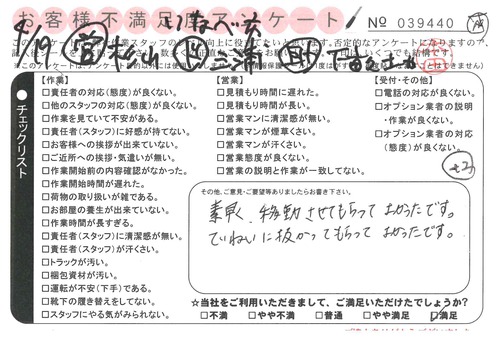 お客様不満足度アンケート
No 039440
4/19
チェックリスト
【作業】
□責任者の対応(態度)が良くない。
□他のスタッフの対応(態度)が良くない。
□作業を見ていて不安がある。
□責任者(スタッフ)に好感が持てない。
□お客様への挨拶が出来ていない。
□ご近所への挨拶・気遣いが無い。
□作業開始前の内容確認がなかった。
□作業開始時間が遅れた。
□荷物の取り扱いが雑である。
□お部屋の養生が出来ていない。
□作業時間が長すぎる。
□責任者(スタッフ)に清潔感が無い。
□責任者(スタッフ)が汗くさい。
□トラックが汚い。
□梱包資材が汚い。
□運転が不安(下手)である。
□靴下の履き替えをしてない。
□スタッフにやる気がみられない。
【営業】
□見積もり時間に遅れた。
□見積もり時間が長い。
□営業マンに清潔感が無い。
□営業マンが煙草くさい。
□営業マンが汗くさい。
□営業態度が良くない。
□営業の説明と作業が一致してない。
【受付・その他】
□電話の対応が良くない。
□オプション業者の説明
・作業が良くない。
□オプション業者の対応
(態度)が良くない。
その他、ご意見・ご要望等ありましたらお書き下さい。
素早く、移動させてもらってよかったです。
ていねいに扱かってもらってよかったです。
☆当社をご利用いただきまして、ご満足いただけたでしょうか?
□不満 □やや不満 □普通 □やや満足 ☑満足